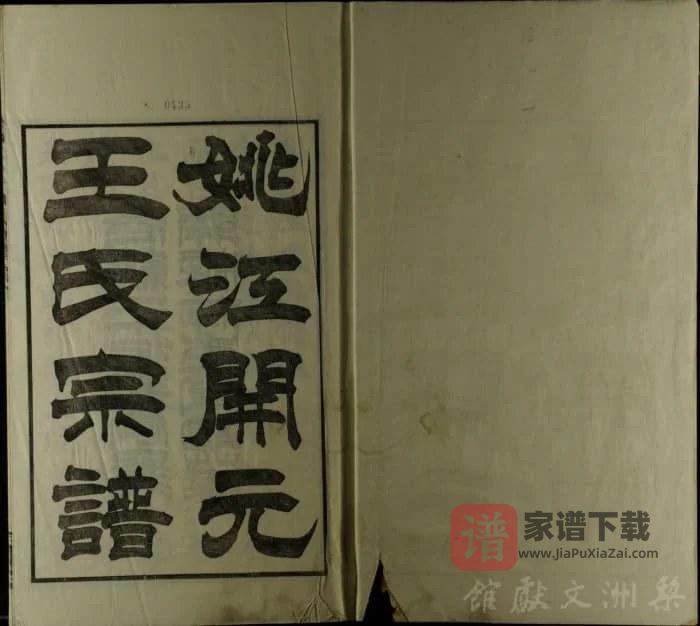 姚江開元
王氏宗譜
0435
谱
家谱下载
www.JiaPuXiaZai.com
梨洲文獻館